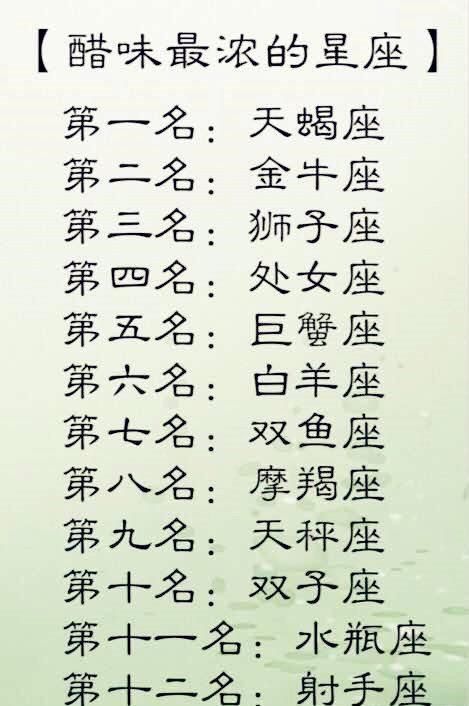 【醋味最浓的星座】
第一名：天蝎座
第二名：金牛座
第三名：狮子座
第四名：处女座
第五名：巨蟹座
第六名：白羊座
第七名：双鱼座
第八名：摩羯座
第九名：天秤座
第十名：双子座
第十一名：水瓶座
第十二名：射手座